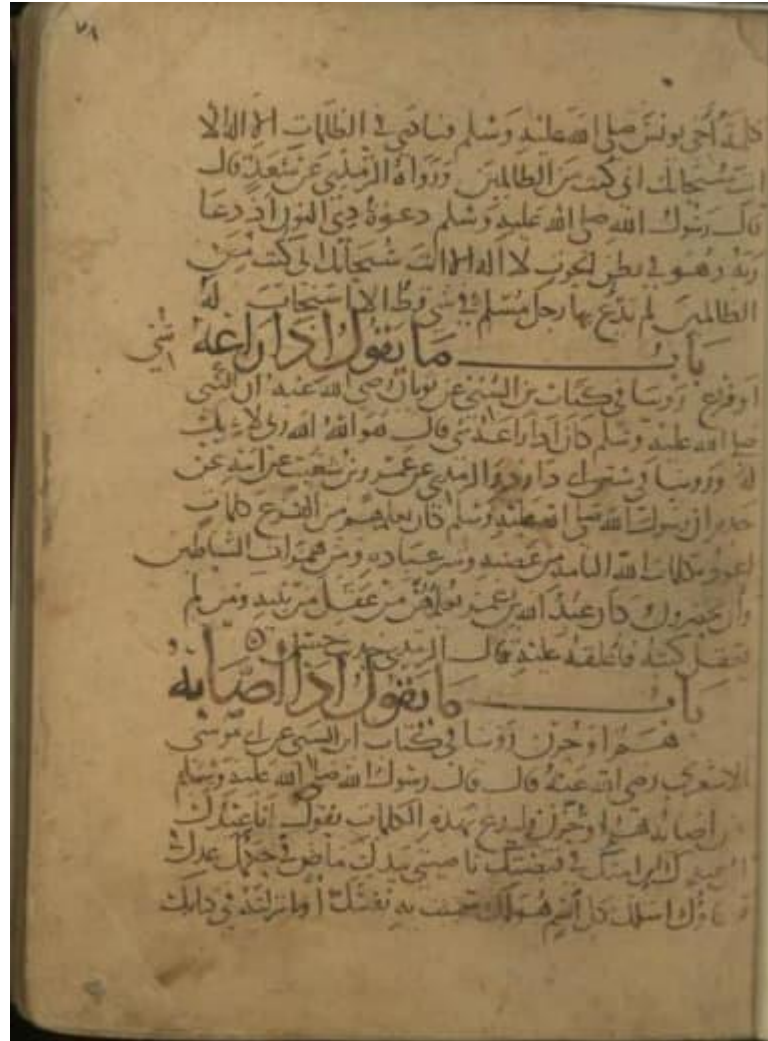 ٧٨
كلمة أخي يونس صلى الله عليه وسلم فنادى في الظلمات ان لا اله الا
انت سبحانك اني كنت من الظالمين ورواه الترمذي عن سعد قال
قال رسول الله صلى الله عليه وسلم دعوة ذي النون اذ دعا
ربه وهو في بطن الحوت لا اله الا انت سبحانك اني كنت من
الظالمين لم يدع بها رجل مسلم في شي قط الا استجاب له
باب ما يقول اذا راعه شي
او فزع روينا في كتاب بن السني عن ثوبان رضي الله عنه ان النبي
صلى الله عليه وسلم كان اذا راعه شي قال هو الله الله ربي لا شريك
له وروينا في سنن ابي داود والترمذي عن عمرو بن شعيب عن ابيه عن
جده ان رسول الله صلى الله عليه وسلم كان يعلمهم من الفزع كلمات
اعوذ بكلمات الله التامة من غضبه وشر عباده ومن همزات الشياطين
وأن يحضرون وكان عبد الله بن عمرو يعلمهن من عقل من بنيه ومن لم
يعقل كتبه فأعلقه عليه قال الترمذي حديث حسن
باب ما يقول اذا اصابه
هم او حزن روينا في كتاب ابن السني عن ابي موسى
الاشعري رضي الله عنه قال قال رسول الله صلى الله عليه وسلم
من اصابه هم او حزن فليدع بهذه الكلمات يقول أنا عبدك
ابن عبدك ابن امتك في قبضتك ناصيتي بيدك ماض في حكمك عدل
في قضاؤك اسلك بكل اسم هو لك سميت به نفسك أو انزلته في كتابك